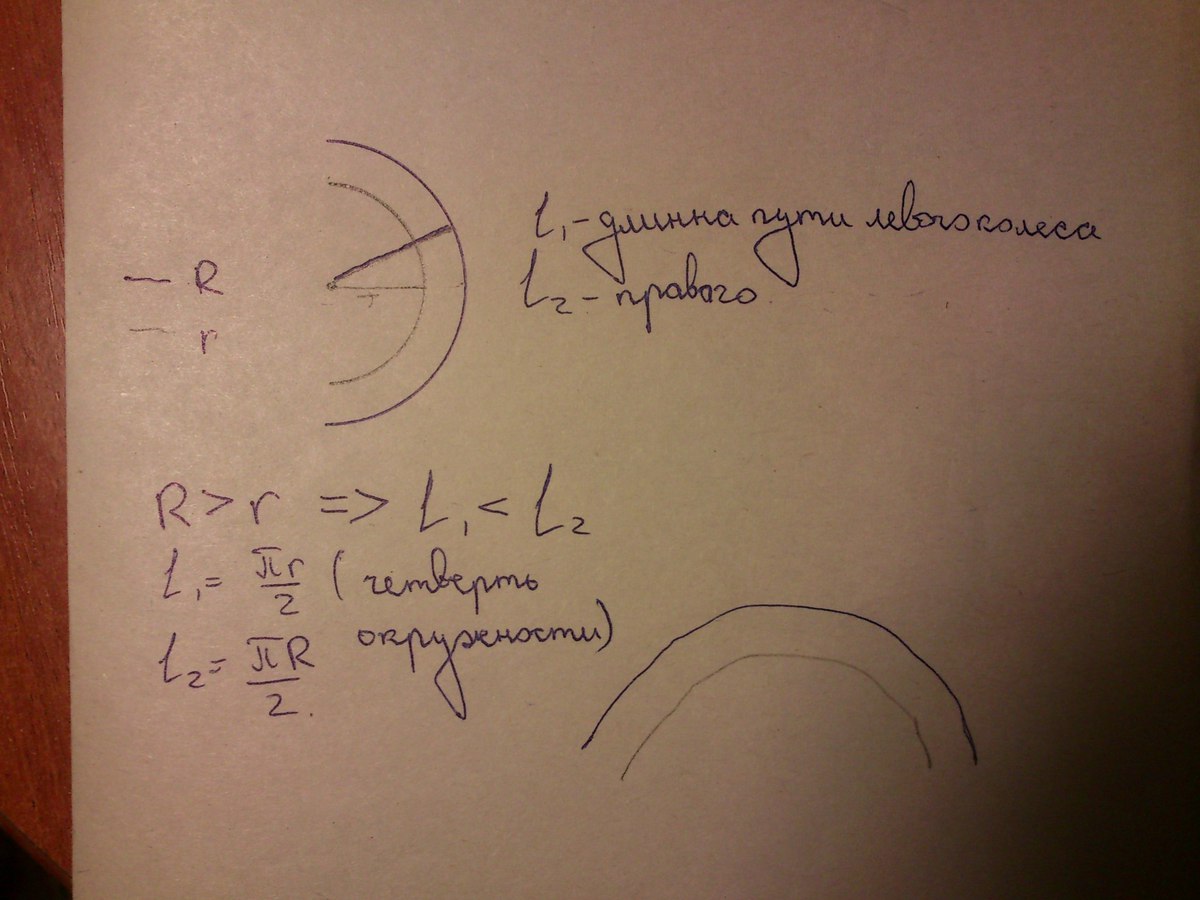 l₁ - длинна пути левого колеса
l₂ - правого
— R
— r
r
R > r => L₁ < L₂
l₁ = πr/2 (четверть
окружности)
l₂ = πR/2.